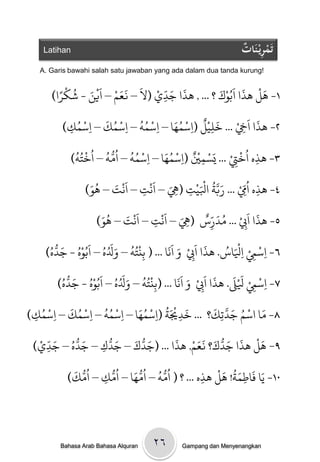 Latihan
تَمْرِيْنَاتٌ
A. Garis bawahi salah satu jawaban yang ada dalam dua tanda kurung!
١- هَلْ هذَا اَبُوْكَ ؟ ... , هذَا جَدِّيْ (لاَ – نَعَمْ – اَيْنَ - شُكْرًا)
٢- هذَا اَخِيْ ... خَلِيْلٌ (اِسْمُهَا – اِسْمُهُ – اِسْمُكَ – اِسْمُكِ)
٣- هذِه اُخْتِيْ ... يَسْمِيْنٌ (اِسْمُهَا – اِسْمُهُ – اُمُّهُ – اُخْتُهُ)
٤- هذِه اُمِّيْ ... رَبَّةُ الْبَيْتِ (هِيَ – اَنْتِ – اَنْتَ – هُوَ)
٥- هذَا اَبِيْ ... مُدَرِّسٌ (هِيَ – اَنْتِ – اَنْتَ – هُوَ)
٦- اِسْمِيْ اِلْيَاسُ. هذَا اَبِيْ وَ اَنَا ... ( بِنْتُهُ – وَلَدُهُ – اَبُوْهُ - جَدُّهُ)
٧- اِسْمِيْ لَيْلَى. هذَا اَبِيْ وَ اَنَا ... (بِنْتُهُ – وَلَدُهُ – اَبُوْهُ - جَدُّهُ)
٨- مَا اسْمُ جَدَّتِكَ؟ ... خَدِيْجَةُ (اِسْمُهَا – اِسْمُهُ – اِسْمُكَ – اِسْمُكِ)
٩- هَلْ هذَا جَدُّكَ؟ نَعَمْ, هذَا ... (جَدُّكَ – جَدُّكِ – جَدُّهُ – جَدِّيْ)
١٠- يَا فَاطِمَةُ! هَلْ هذِه ... ؟ ( اُمُّهُ – اُمُّهَا – اُمُّكِ – اُمُّكَ)
Bahasa Arab Bahasa Alquran ٢٦ Gampang dan Menyenangkan